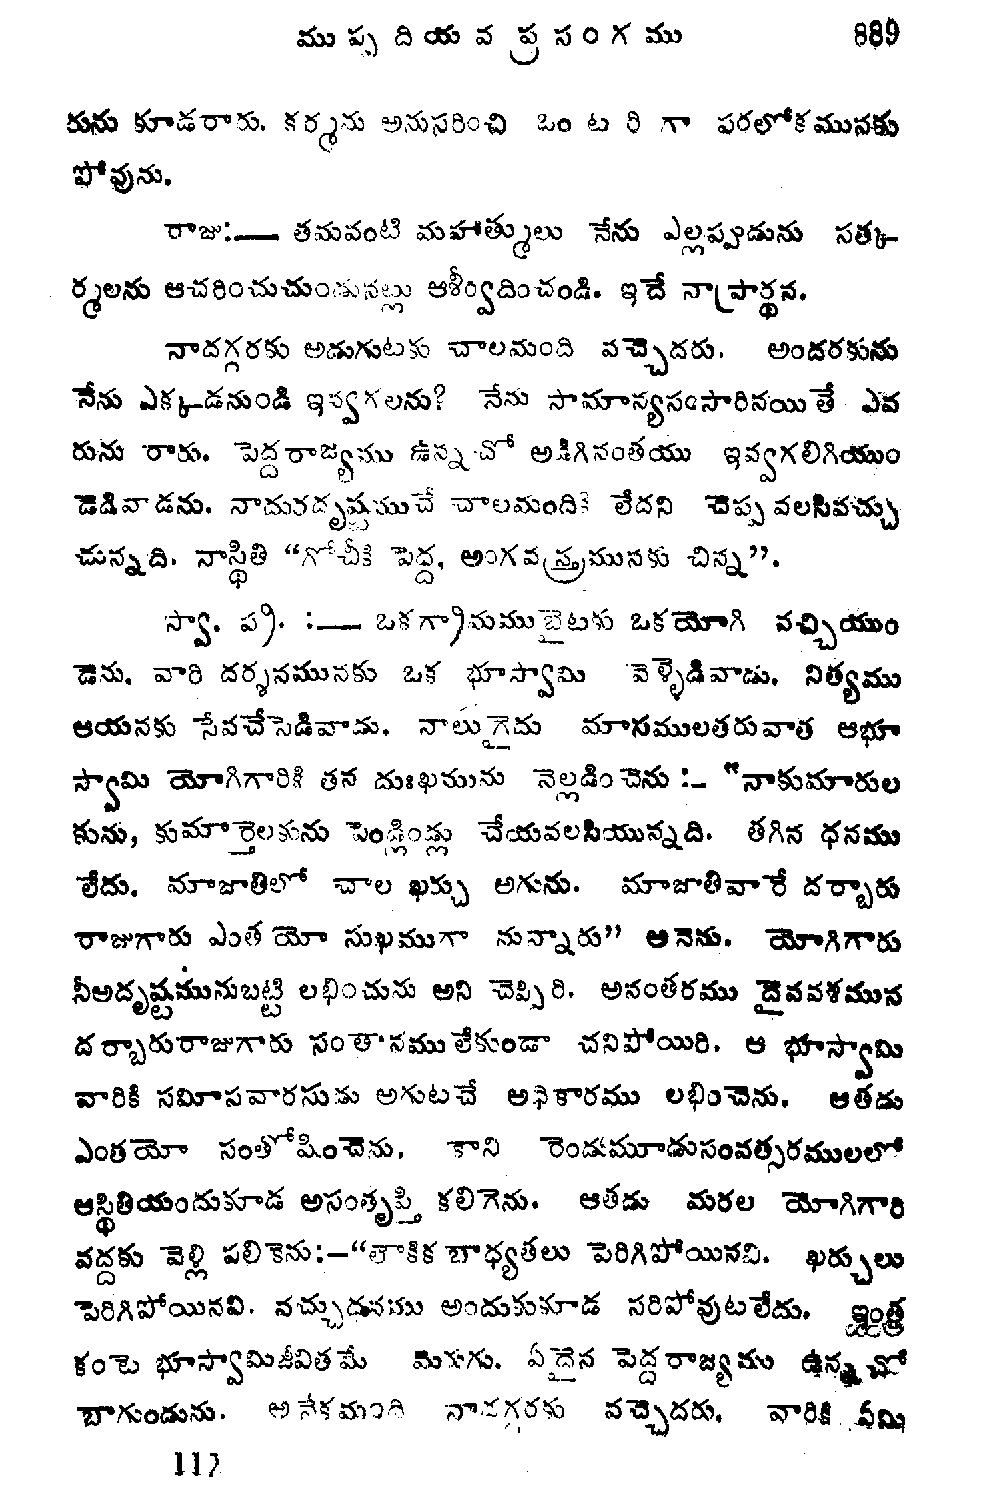 ముప్పదియవ ప్రసంగము 889
రును కూడరారు. కర్మను అనుసరించి ఒంటరిగా పరలోకమునకు
పోవును.
రాజు:— తమవంటి మహాత్ములు నేను ఎల్లప్పుడును సత్క-
ర్మలను ఆచరించుచుండునట్లు ఆశీర్వదించండి. ఇదే నాప్రార్థన.
నాదగ్గరకు అడుగుటకు చాలమంది వచ్చెదరు. అందరకును
నేను ఎక్కడనుండి ఇవ్వగలను? నేను సామాన్యసంసారినయితే ఎవ
రును రారు. పెద్దరాజ్యము ఉన్నచో అడిగినంతయు ఇవ్వగలిగియుం
డెడివాడను. నాదురదృష్టముచే చాలమందికి లేదని చెప్పవలసివచ్చు
చున్నది. నాస్థితి “గోచీకి పెద్ద, అంగవస్త్రమునకు చిన్న”.
స్వా. ప్ర. :— ఒకగ్రామముబైటకు ఒకయోగి వచ్చియుం
డెను. వారి దర్శనమునకు ఒక భూస్వామి వెళ్ళెడివాడు. నిత్యము
ఆయనకు సేవచేసెడివాడు. నాలుగైదు మాసములతరువాత ఆభూ
స్వామి యోగిగారికి తన దుఃఖమును నెల్లడించెను :– “నాకుమారుల
కును, కుమార్తెలకును పెండ్లిండ్లు చేయవలసియున్నది. తగిన ధనము
లేదు. మాజాతిలో చాల ఖర్చు అగును. మాజాతివారే దర్బారు
రాజుగారు ఎంతయో సుఖముగా నున్నారు” అనెను. యోగిగారు
నీఅదృష్టమునుబట్టి లభించును అని చెప్పిరి. అనంతరము దైవవశమున
దర్బారురాజుగారు సంతానములేకుండా చనిపోయిరి. ఆ భూస్వామి
వారికి సమీపవారసుడు అగుటచే అధికారము లభించెను. ఆతడు
ఎంతయో సంతోషించెను. కాని రెండుమూడుసంవత్సరములలో
ఆస్థితియందుకూడ అసంతృప్తి కలిగెను. ఆతడు మరల యోగిగారి
వద్దకు వెళ్లి పలికెను:–“లౌకిక బాధ్యతలు పెరిగిపోయినవి. ఖర్చులు
పెరిగిపోయినవి. వచ్చుధనము అందుకుకూడ సరిపోవుటలేదు. ఇంత
కంటె భూస్వామిజీవితమే మెరుగు. ఏదైన పెద్దరాజ్యము ఉన్నచో
బాగుండును. అనేకమంది నాదగ్గరకు వచ్చెదరు. వారికి ఏమి
112